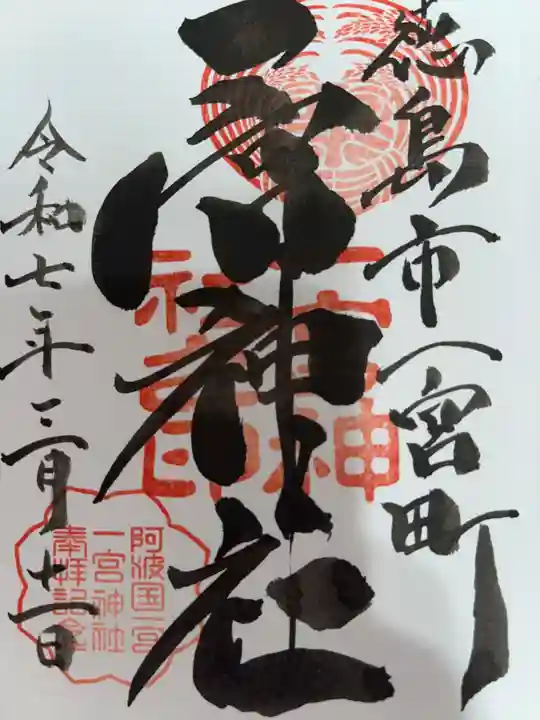 徳島市一宮町
一宮神社
令和七年三月十一日
一宮神
社宮印
阿波国一宮
一宮神社
奉拝記念